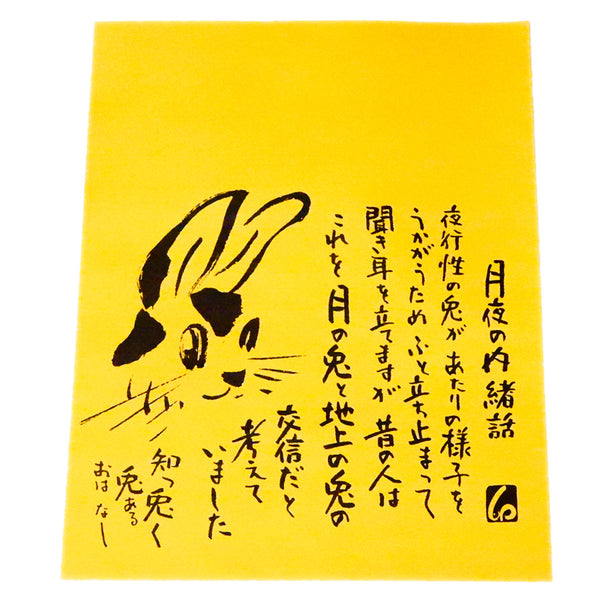 月夜の内緒話
夜行性の兎があたりの様子を
うかがうため ふと立ち止まって
聞き耳を立てますが 昔の人は
これを月の兎と地上の兎の
交信だと
考えて
いました
知っ兎く
兎ある
おはなし